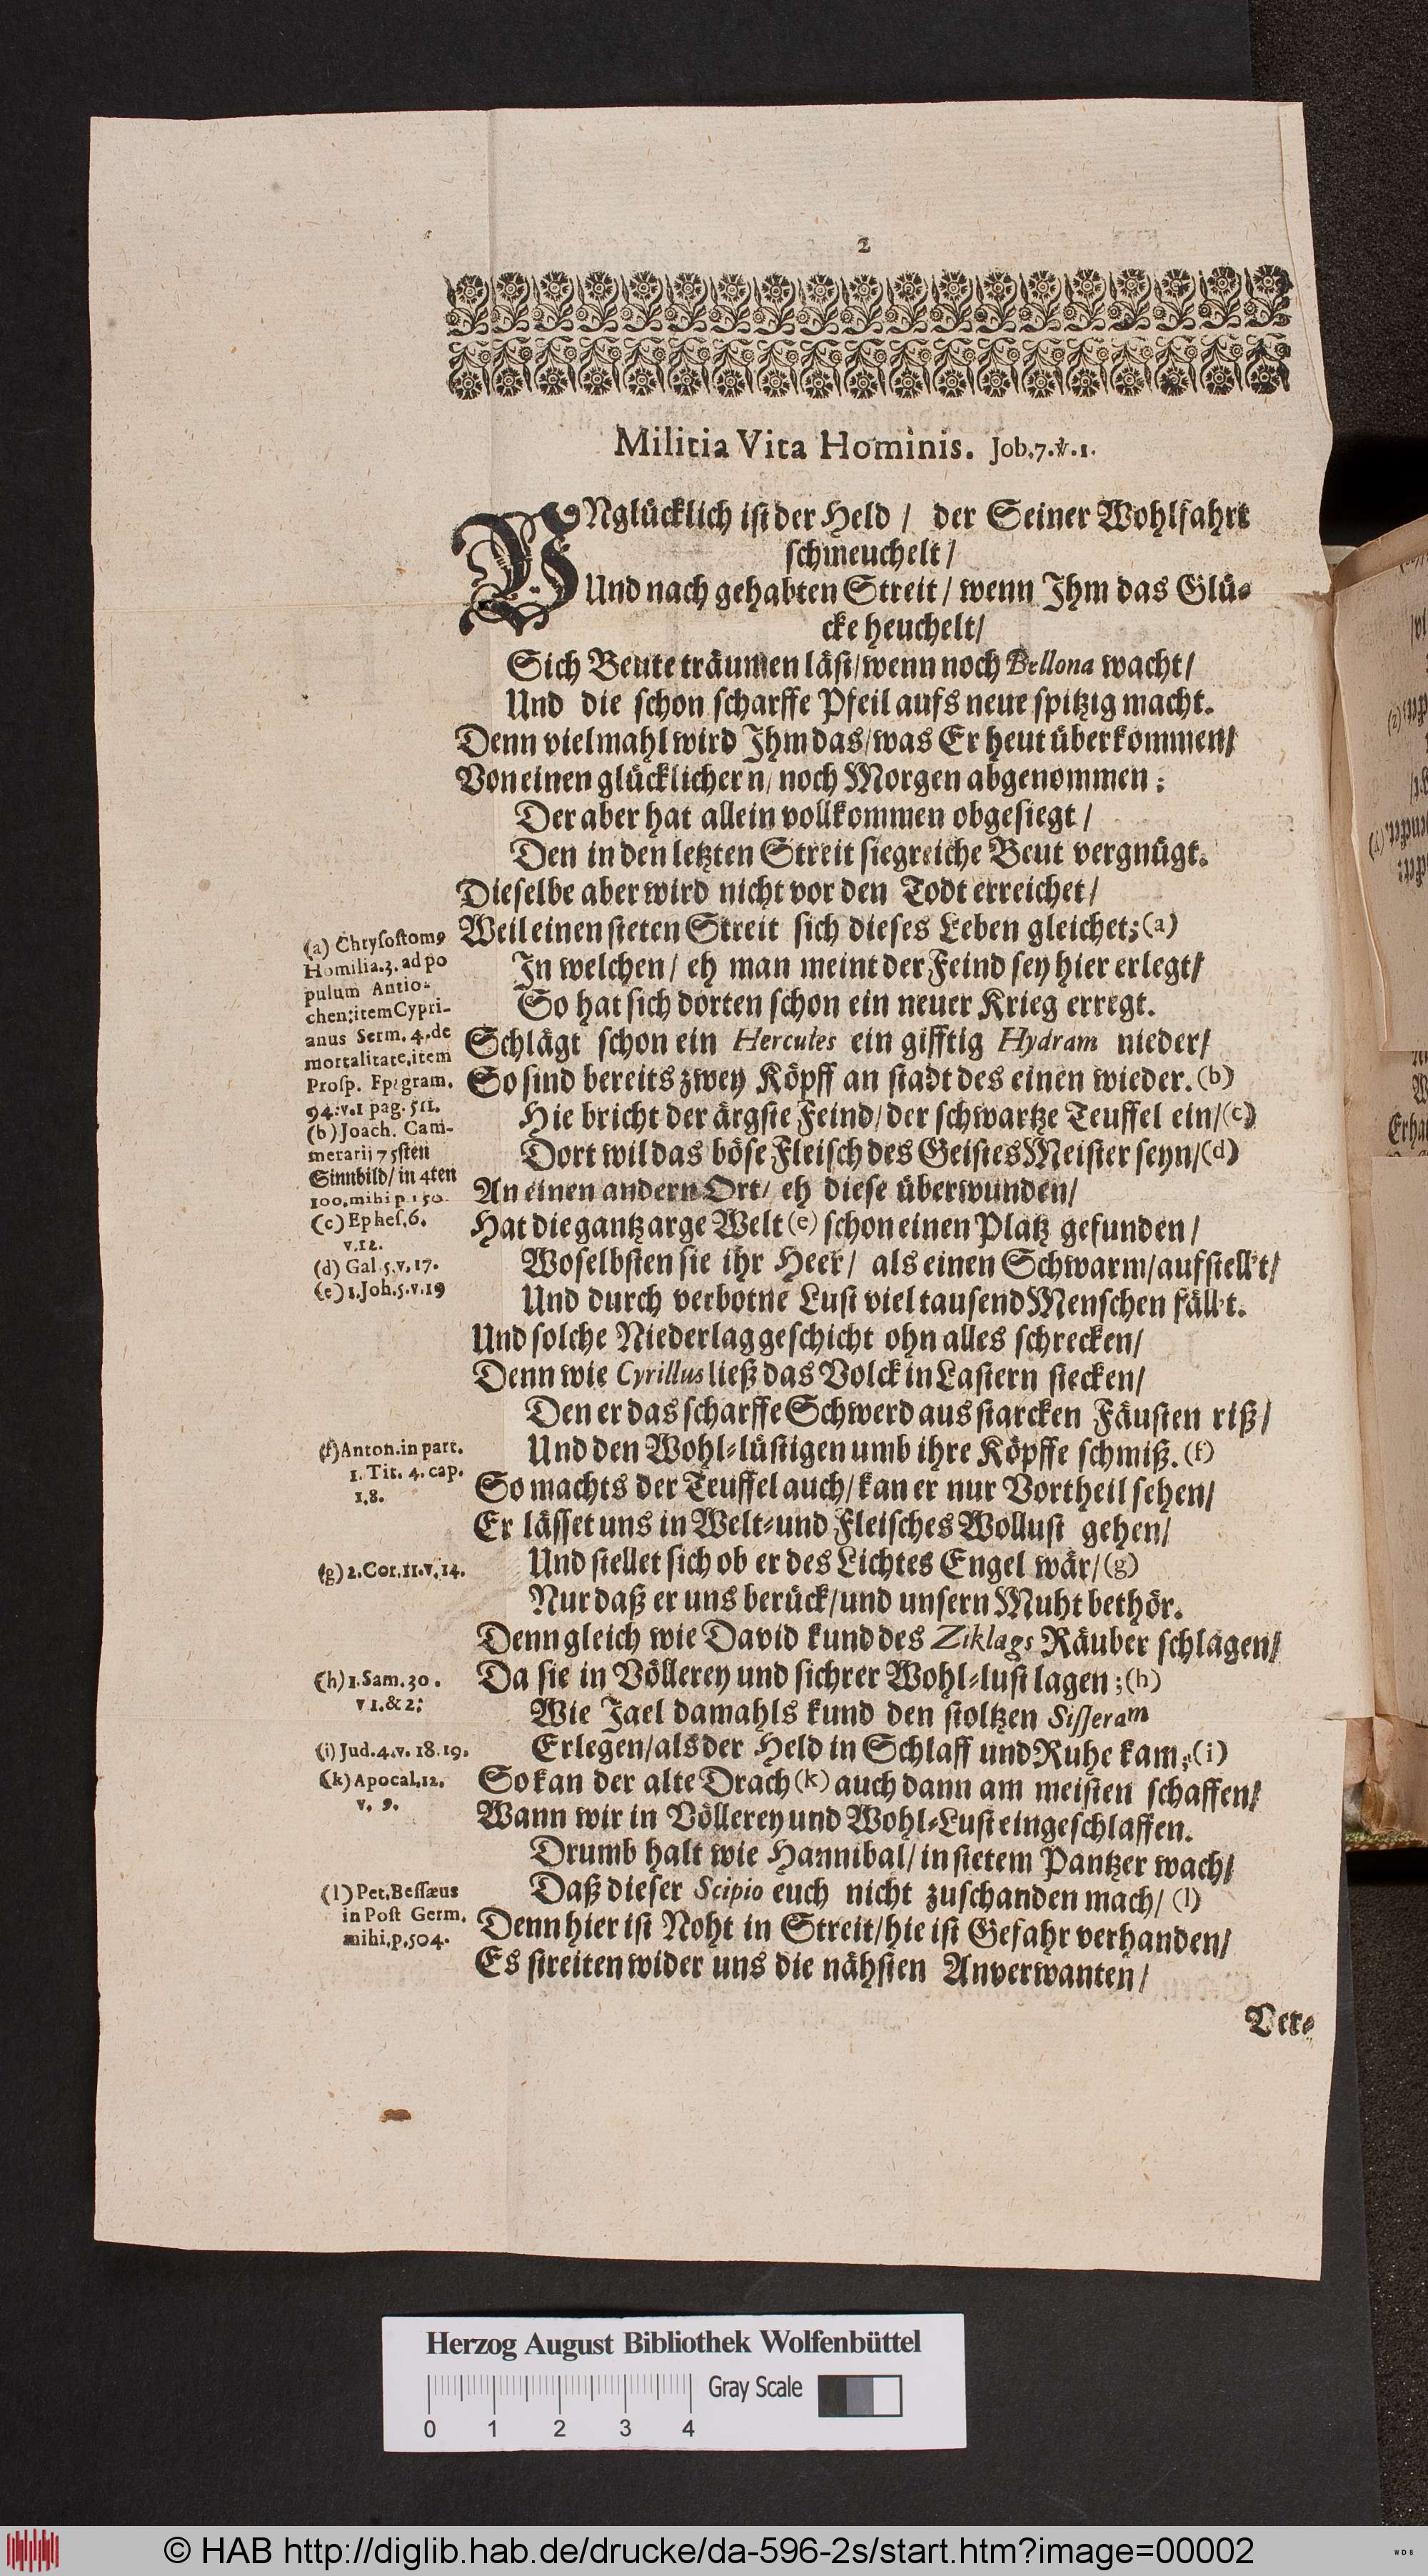 2
Militia Vita Hominis. Job.7.℣.1.
UNglücklich ist der Held / der Seiner Wohlfahrt
schmeuchelt /
Und nach gehabten Streit / wenn Ihm das Glü-
cke heuchelt/
Sich Beute träumen läst/wenn noch Bellona wacht/
Und die schon scharffe Pfeil aufs neue spitzig macht.
Denn vielmahl wird Ihm das/was Er heut überkommen/
Von einen glücklichern/ noch Morgen abgenommen;
Der aber hat allein vollkommen obgesiegt /
Den in den letzten Streit siegreiche Beut vergnügt.
Dieselbe aber wird nicht vor den Todt erreichet/
Weil einen steten Streit sich dieses Leben gleichet;(a)
In welchen/ eh man meint der Feind sey hier erlegt/
So hat sich dorten schon ein neuer Krieg erregt.
Schlägt schon ein Hercules ein gifftig Hydram nieder/
So sind bereits zwey Köpff an stadt des einen wieder.(b)
Hie bricht der ärgste Feind/der schwartze Teuffel ein/(c)
Dort wil das böse Fleisch des Geistes Meister seyn/(d)
An einen andern Ort/ eh diese überwunden/
Hat die gantz arge Welt(e) schon einen Platz gefunden/
Woselbsten sie ihr Heer/ als einen Schwarm/aufstell't/
Und durch verbotne Lust viel tausend Menschen fäll't.
Und solche Niederlag geschicht ohn alles schrecken/
Denn wie Cyrillus ließ das Volck in Lastern stecken/
Den er das scharffe Schwerd aus starcken Fäusten riß/
Und den Wohl-lüstigen umb ihre Köpffe schmiß.(f)
So machts der Teuffel auch/kan er nur Vortheil sehen/
Er lässet uns in Welt-und Fleisches Wollust gehen/
Und stellet sich ob er des Lichtes Engel wär/(g)
Nur daß er uns berück/und unsern Muht bethör.
Denn gleich wie David kund des Ziklags Räuber schlagen/
Da sie in Völlerey und sichrer Wohl-lust lagen;(h)
Wie Jael damahls kund den stoltzen Sisseram
Erlegen/als der Held in Schlaff und Ruhe kam;(i)
So kan der alte Drach(k) auch dann am meisten schaffen/
Wann wir in Völlerey und Wohl-Lust eingeschlaffen.
Drumb halt wie Hannibal/in stetem Pantzer wach/
Daß dieser Scipio euch nicht zuschanden mach/ (l)
Denn hier ist Noht in Streit/hie ist Gefahr verhanden/
Es streiten wider uns die nähsten Anverwanten/
Ver-
(a) Chrysostomꝰ
Homilia.3. ad po
pulum Antio-
chen:item Cypri-
anus Serm. 4.de
mortalitate.item
Prosp. Epigram.
94:v.1 pag. 511.
(b) Joach. Cam-
merarij 75sten
Sinnbild/ in 4ten
100.mihi p.150.
(c) Ephes.6.
v.12.
(d) Gal.5.v.17.
(e) 1.Joh.5.v.19
(f)Anton.in part.
1. Tit. 4. cap.
1.8.
(g) 2.Cor.11.v.14.
(h) 1.Sam.30.
v 1.&2.
(i) Jud.4.v. 18.19.
(k) Apocal.12.
v. 9.
(l) Pet.Bessæus
in Post Germ.
mihi.p.504.
Herzog August Bibliothek Wolfenbüttel
0 1 2 3 4
Gray Scale
© HAB http://diglib.hab.de/drucke/da-596-2s/start.htm?image=00002
WDB